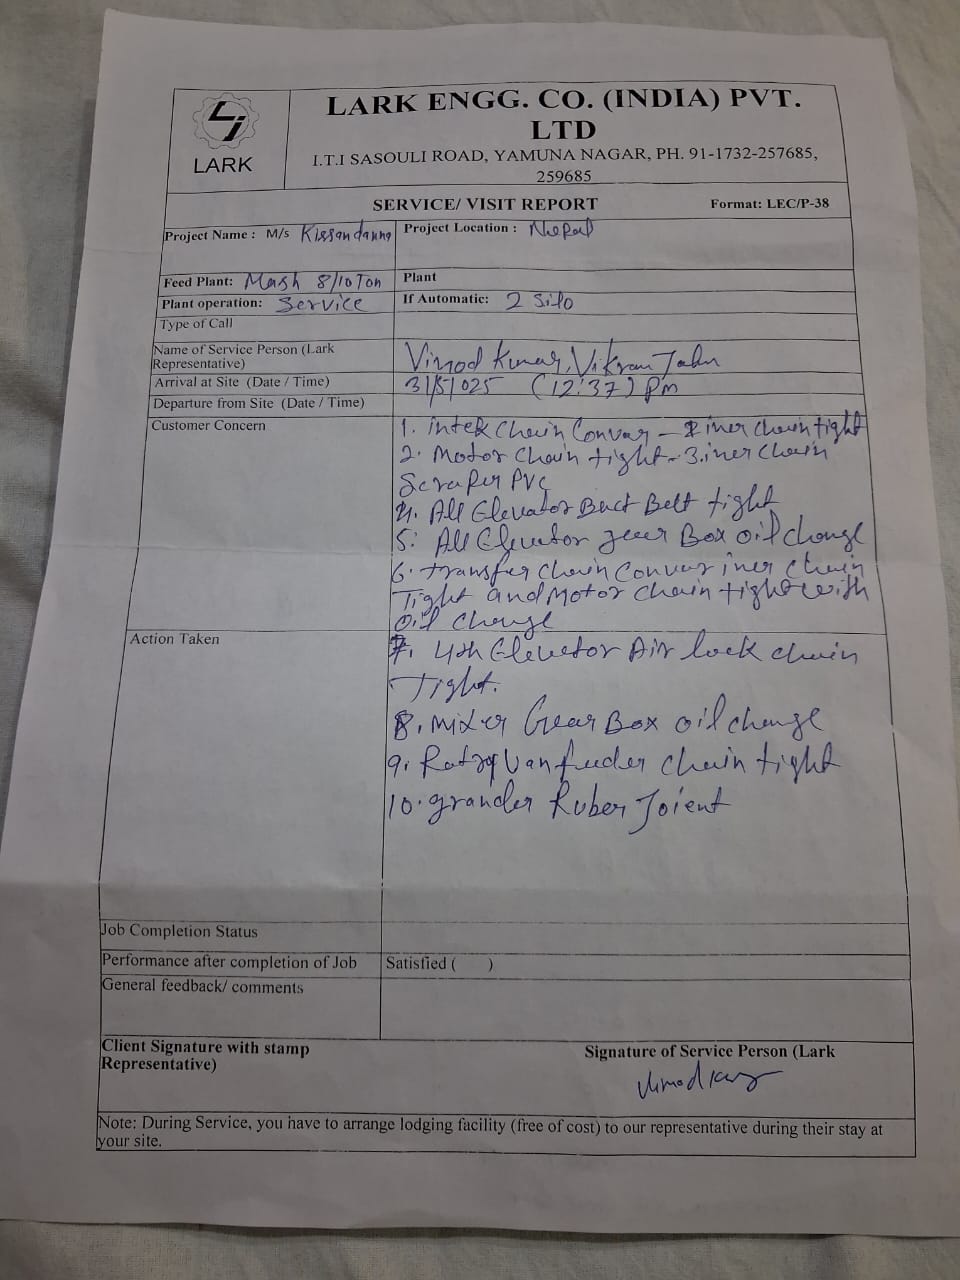 LARK
LARK ENGG. CO. (INDIA) PVT.
LTD
I.T.I SASOULI ROAD, YAMUNA NAGAR, PH. 91-1732-257685,
259685
SERVICE/ VISIT REPORT Format: LEC/P-38
Project Name : M/s Kissandanna Project Location : Nepal
Feed Plant: Mash 8/10 Ton Plant
Plant operation: Service If Automatic: 2 Silo
Type of Call
Name of Service Person (Lark
Representative) Vinod Kumar, Vikram
Arrival at Site (Date / Time) 31/5/025 (12:37) pm
Departure from Site (Date / Time)
Customer Concern
1. intek Chain Convar - iner chain tight
2. Motor Chain tight - 3. iner Chain
Scraper PVC
4. All Elevator Buct Belt tight
5. All Elevator gear Box oil change
6. transfer Chain Convar iner chain
Tight and Motor Chain tight with
oil change
Action Taken
7. 4th Elevetor Air lock chain
Tight.
8. Mixer Gear Box oil change
9. fuder chain tight
10. grander Ruber Joient
Job Completion Status
Performance after completion of Job Satisfied ( )
General feedback/ comments
Client Signature with stamp Signature of Service Person (Lark
Representative)
Note: During Service, you have to arrange lodging facility (free of cost) to our representative during their stay at
your site.